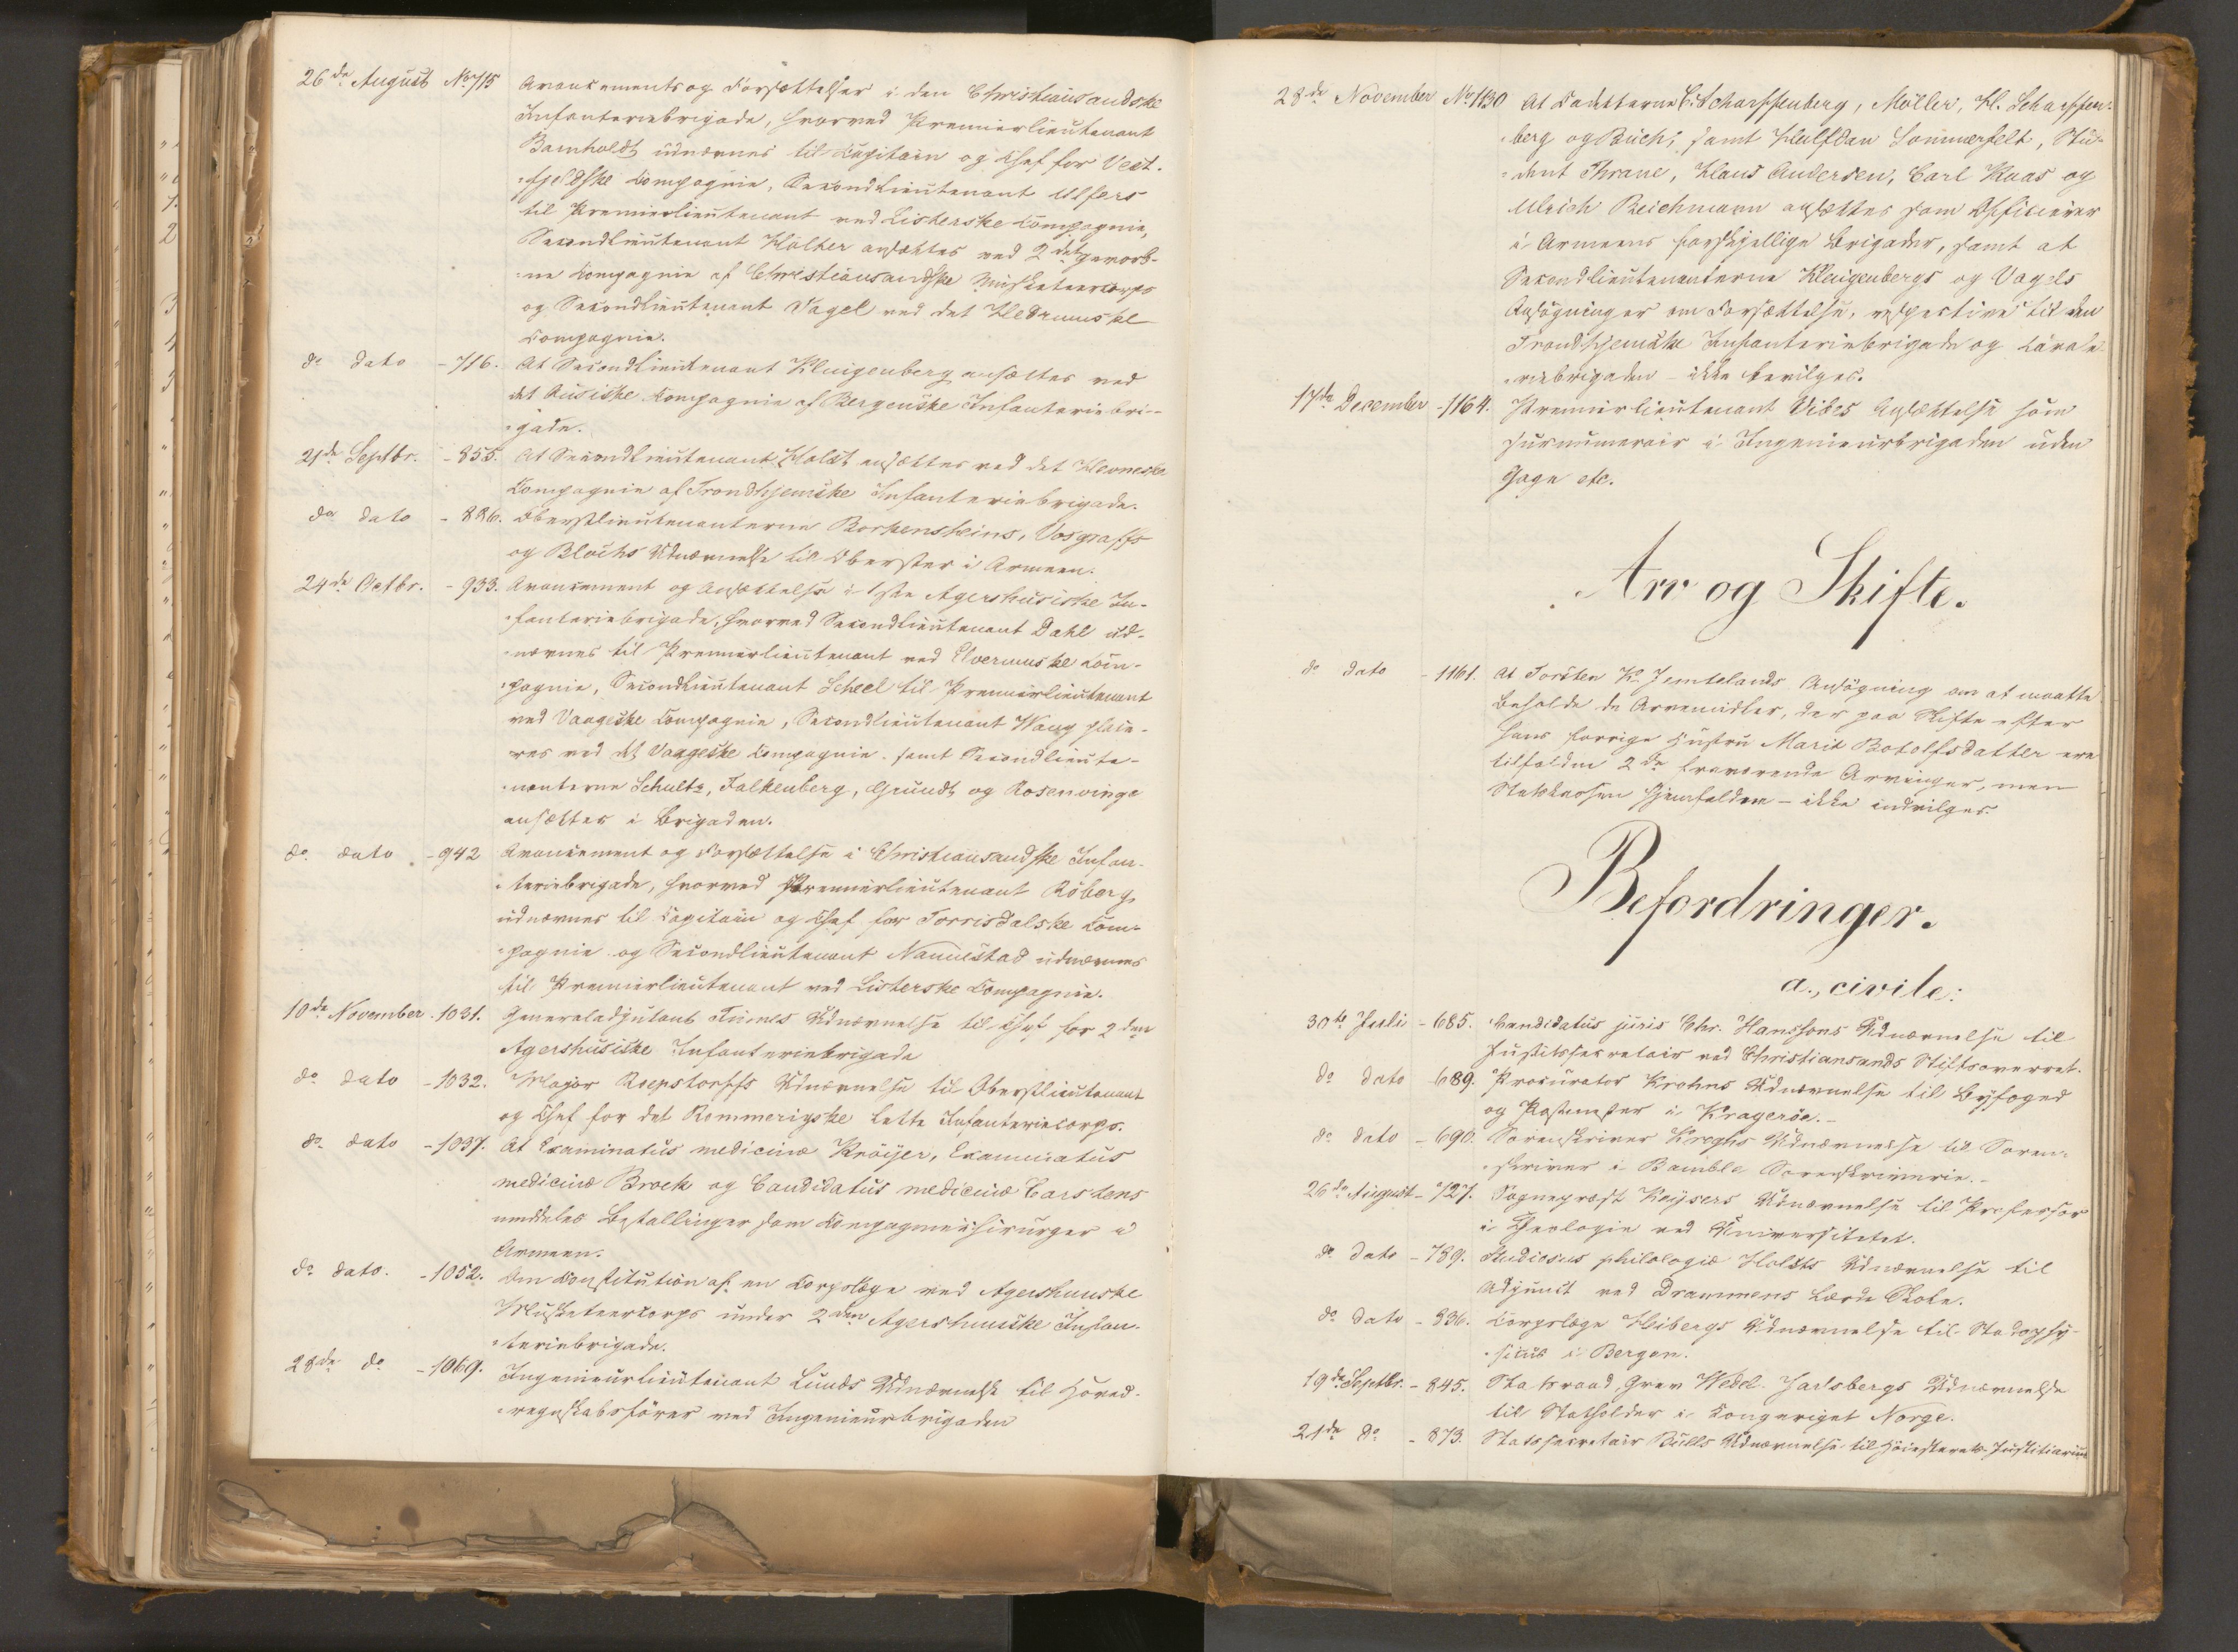 26de August No 715 Avancements og Forsættelser i den Christiansandske
Infanteriebrigade, hvorved Premierlieutenant
Barnholdt udnævnes til Capitain og Chef for Vest-
fjeldske Compagnie, Secondlieutenant Ulfers
til Premierlieutenant ved Listerske Compagnie,
Secondlieutenant Holter ansættes ved 2det gevorb-
ne Compagnie af Christiansandske Musketeercorps
og Secondlieutenant Vagel ved det Hedrumske
Compagnie.
do dato - 716. At Secondlieutenant Klingenberg ansættes ved
det Russiske Compagnie af Bergenske Infanteriebri-
gade.
21de Septbr. - 855. At Secondlieutenant Holst ansættes ved det Hevneske
Compagnie af Trondhjemske Infanteriebrigade.
do dato - 886. Oberstlieutenanterne Borkensteins, Vosgraffs
og Blochs Udnævnelse til Oberster i Armeen.
24de Octbr. - 933. Avancement og Ansættelse i 1ste Agershusiske In-
fanteriebrigade, hvorved Secondlieutenant Dahl ud-
nævnes til Premierlieutenant ved Elverumske Com-
pagnie, Secondlieutenant Scheel til Premierlieutenant
ved Vaageske Compagnie, Secondlieutenant Wang place-
res ved det Vaageske Compagnie samt Secondlieute-
nanterne Schultz, Falkenberg, Grundt og Rosenvinge
ansættes i Brigaden.
do dato - 942 Avancement og Forsættelse i Christiansandske Infan-
teriebrigade, hvorved Premierlieutenant Röberg
udnævnes til Capitain og Chef for Torrisdalske Com-
pagnie og Secondlieutenant Nannestad udnævnes
til Premierlieutenant ved Listerske Compagnie.
10de November - 1031. Generaladjutant Sturmes Udnævnelse til Chef for 2den
Agershusiske Infanteriebrigade
do dato - 1032. Major Roepstorffs Udnævnelse til Oberstlieutenant
og Chef for det Rommerigske lette Infanteriecorps.
do dato - 1037. At Examinatus medicinæ Kröijer, Examinatus
medicinæ Broch og Candidatus medicinæ Carstens
meddeles Bestallinger som Compagniechirurger i
Armeen.
do dato. - 1052. Om Constitution af en Corpslæge ved Agershuuske
Musketeercorps under 2den Agershuuske Infan-
teriebrigade.
28de do - 1069. Ingenieurlieutenant Lunds Udnævnelse til Hoved-
regnskabsförer ved Ingenieurbrigaden
28de November No 1130 At Cadetterne C. Scharffenberg, Möller, H. Scharffen-
berg og Buch, samt Halfdan Sommerfelt, Stu-
dent Thrane, Klaus Andersen, Carl Kaas og
Ulrich Reichmann ansættes som Officierer
i Armeens forskjellige Brigader, samt at
Secondlieutenanterne Klingenbergs og Vagels
Ansögninger om Forsættelse, respective til den
Trondhjemske Infanteriebrigade og Cavale-
riebrigaden - ikke bevilges.
17de December - 1164. Premierlieutenant Vibes Ansættelse som
surnumerair i Ingenieurbrigaden uden
Gage etc.
Arv og Skifte.
do dato - 1161. At Torsten K. Jemtelands Ansögning om at maatte
beholde de Arvemidler, der paa Skifte efter
hans forrige Hustru Marit Botolfsdatter ere
tilfaldne 2de fraværende Arvinger, men
Statskassen hjemfaldne - ikke indvilges.
Befordringer.
a., civile:
30te Juli - 685. Candidatus juris Chr. Hanssons Udnævnelse til
Justitssecretair ved Christiansands Stiftsoverret.
do dato - 689. Procurator Krohns Udnævnelse til Byfoged
og Postmester i Kragerøe. -
do dato - 690. Sorenskriver Kreghs Udnævnelse til Soren-
skriver i Bamble Sorenskriverie. -
26de August - 727. Sognepræst Keysers Udnævnelse til Professor
i Theologie ved Universitetet.
do dato - 789. Studiosus philologiæ Holsts Udnævnelse til
Adjunct ved Drammens lærde Skole.
do dato - 836. Corpslæge Heibergs Udnævnelse til Stadsphy-
sicus i Bergen.
19de Septbr. - 845. Statsraad, Grev Wedel-Jarlsbergs Udnævnelse
til Statholder i Kongeriget Norge.
21de do - 873. Statssecretair Bulls Udnævnelse til Höiesterets Justitiarius